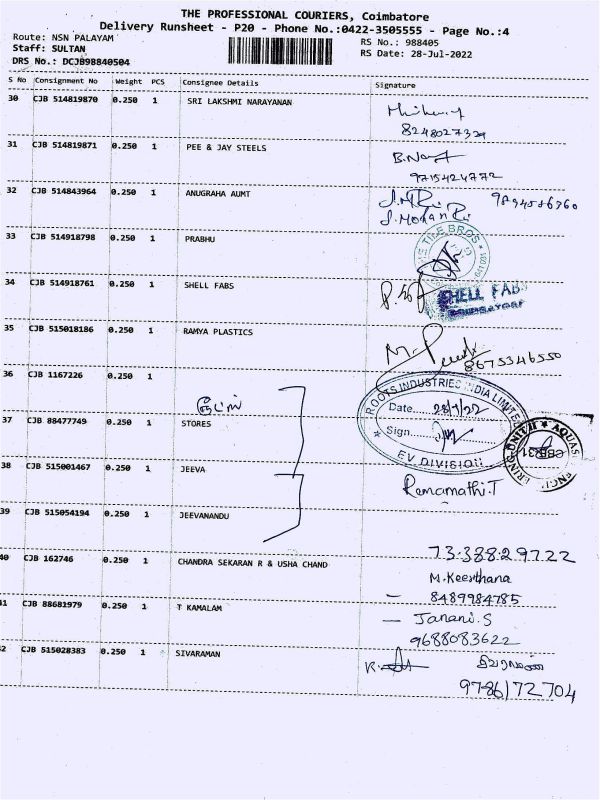 THE PROFESSIONAL COURIERS, Coimbatore
Delivery Runsheet - P20 - Phone No.:0422-3505555 - Page No.:4
Route: NSN PALAYAM
RS No.: 988405
Staff: SULTAN
RS Date: 28-Jul-2022
DRS No.: DCJB98840504
S No Consignment No Weight PCS Consignee Details Signature
30 CJB 514819870 0.250 1 SRI LAKSHMI NARAYANAN
8248027329
31 CJB 514819871 0.250 1 PEE & JAY STEELS
9715424772
32 CJB 514843964 0.250 1 ANUGRAHA AUMT
33 CJB 514918798 0.250 1 PRABHU
34 CJB 514918761 0.250 1 SHELL FABS
SHELL FABS
35 CJB 515018186 0.250 1 RAMYA PLASTICS
8675346550
36 CJB 1167226 0.250 1
ROOTS INDUSTRIES INDIA LIMITED
Date 28/7/22
37 CJB 88477749 0.250 1 STORES
Sign
EV DIVISION
38 CJB 515001467 0.250 1 JEEVA
Ramamathi.T
39 CJB 515054194 0.250 1 JEEVANANDU
7338829722
40 CJB 162746 0.250 1 CHANDRA SEKARAN R & USHA CHAND
M.Keerthana
8489984785
41 CJB 88681979 0.250 1 T KAMALAM
Janani.S
9688083622
42 CJB 515028383 0.250 1 SIVARAMAN
9786172704